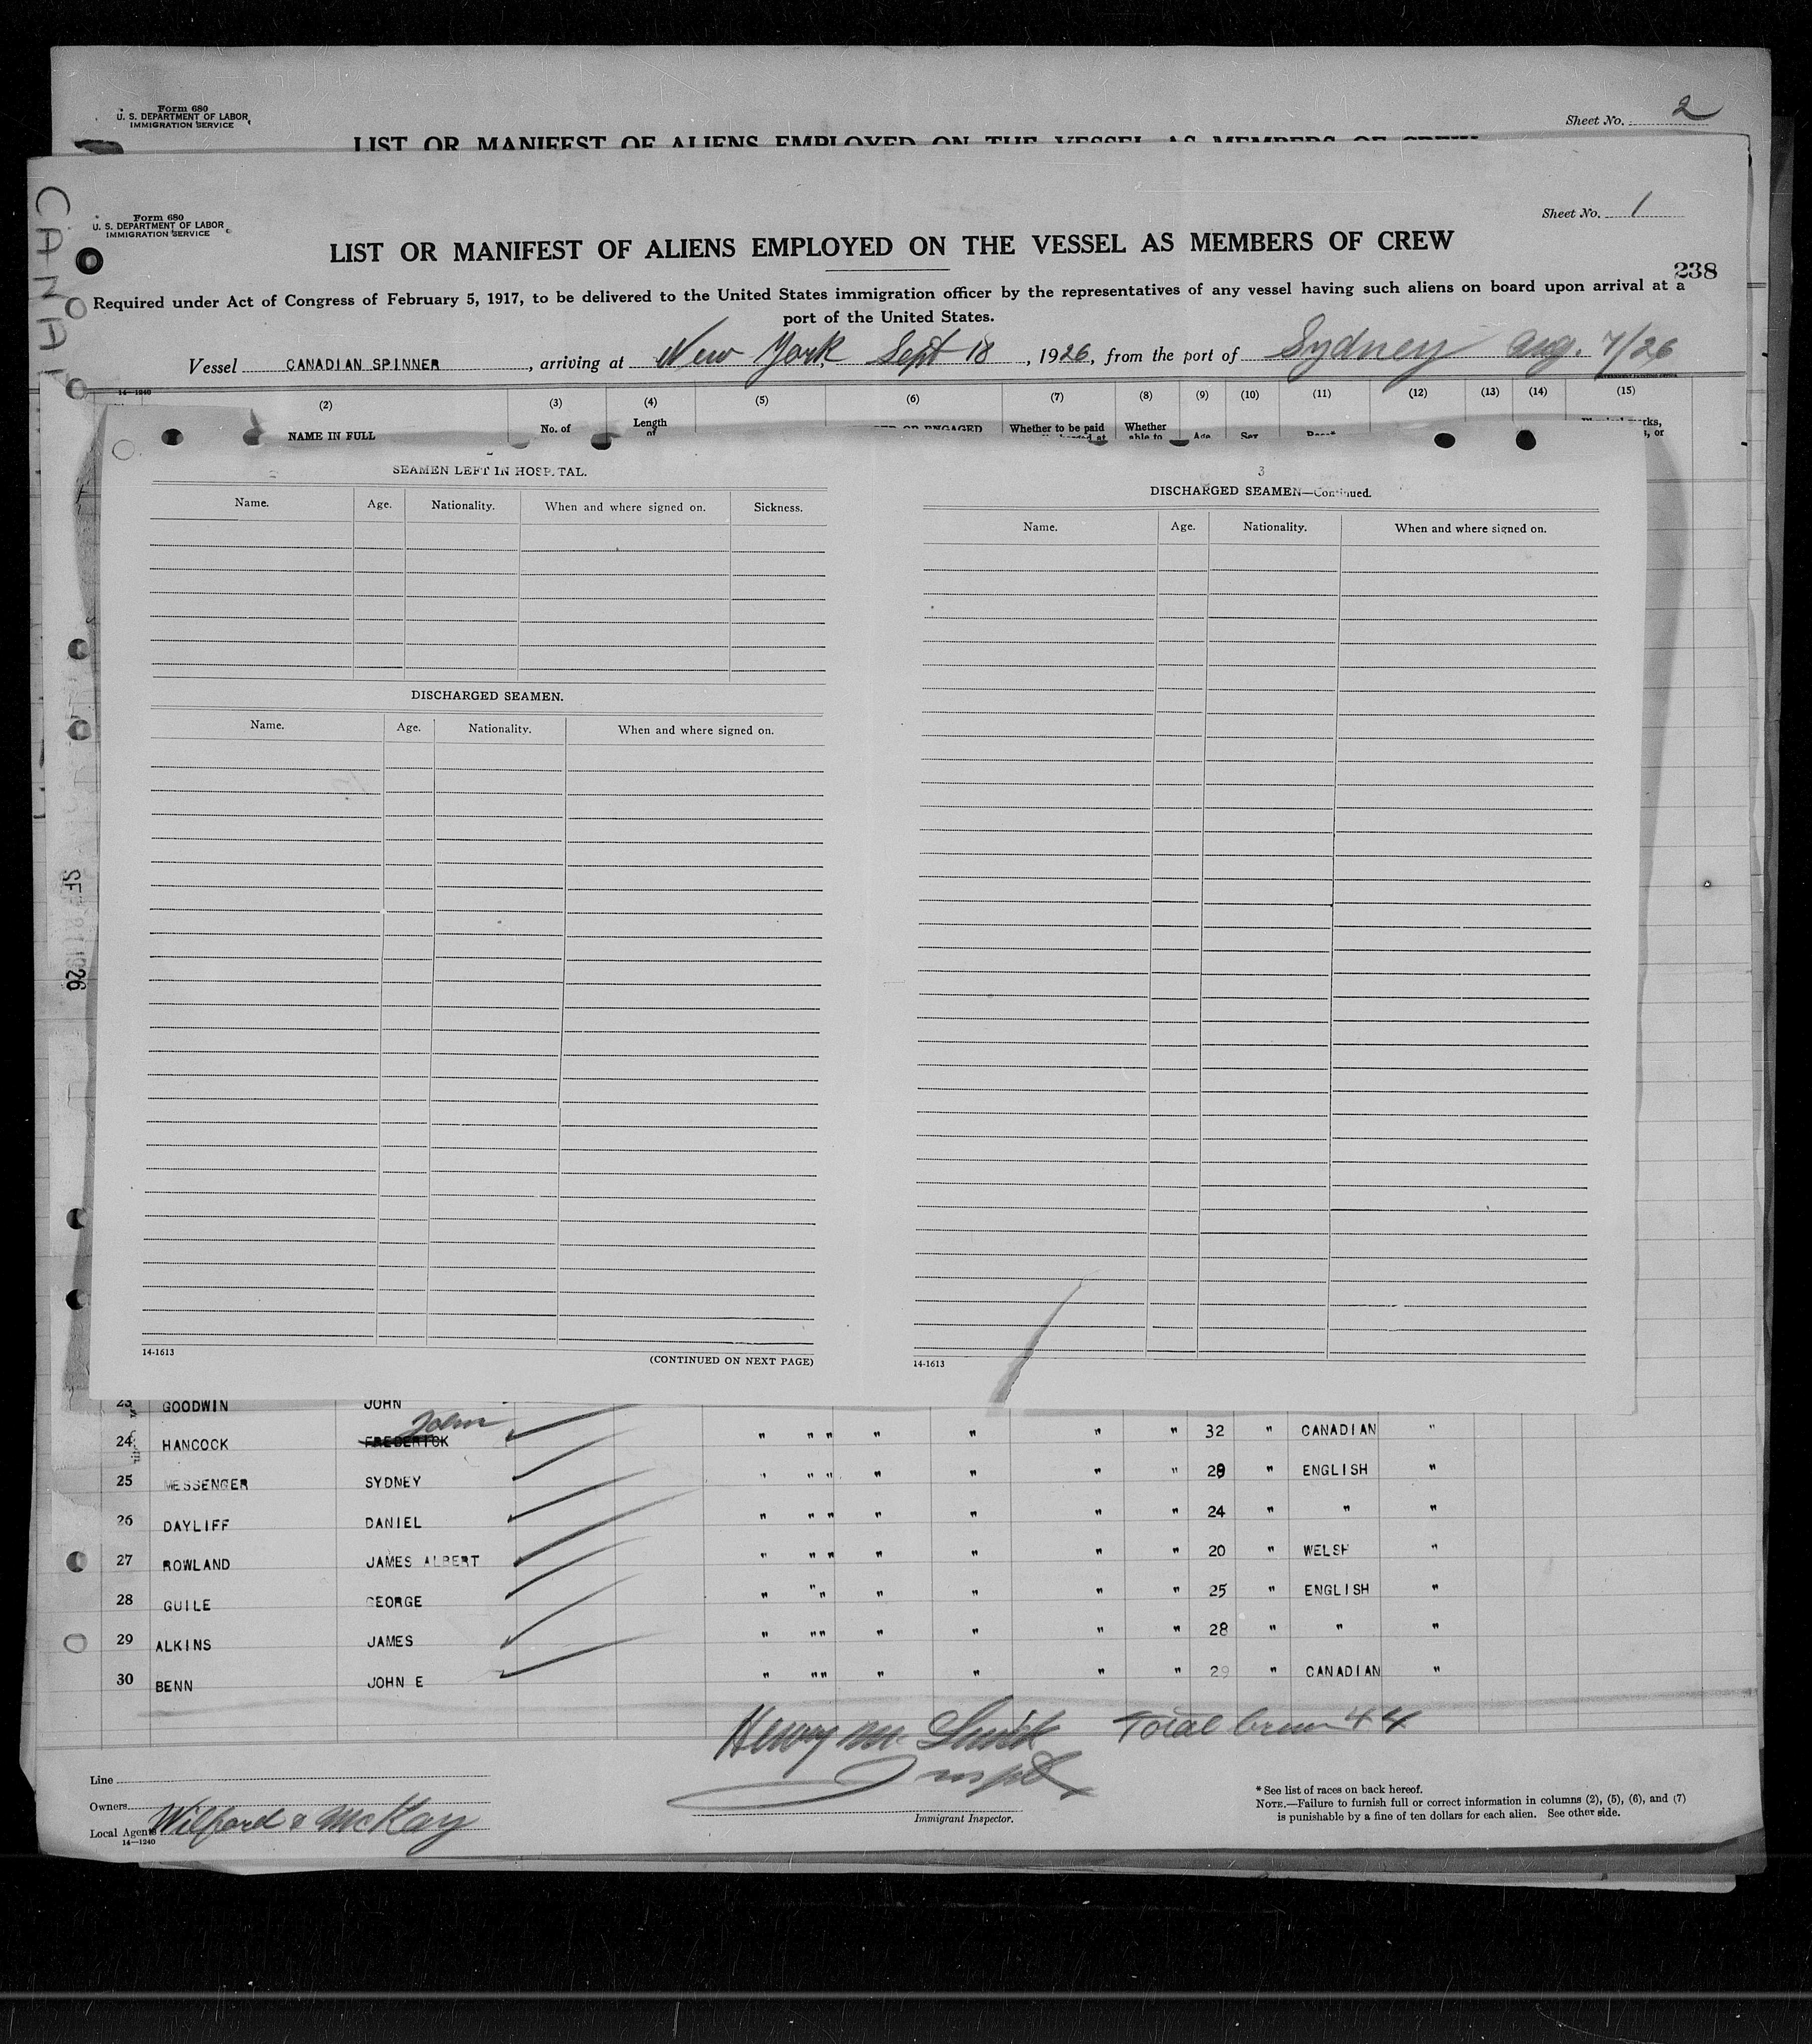 Form 680
U. S. DEPARTMENT OF LABOR
IMMIGRATION SERVICE
Sheet No. 2
LIST OR MANIFEST OF ALIENS EMPLOYED ON THE VESSEL AS MEMBERS OF CREW
Form 680
U. S. DEPARTMENT OF LABOR
IMMIGRATION SERVICE
Sheet No. 1
LIST OR MANIFEST OF ALIENS EMPLOYED ON THE VESSEL AS MEMBERS OF CREW
238
Required under Act of Congress of February 5, 1917, to be delivered to the United States immigration officer by the representatives of any vessel having such aliens on board upon arrival at a
port of the United States.
Vessel CANADIAN SPINNER, arriving at New York Sept 18, 1926, from the port of Sydney Aug. 7/26
14—1240
(2) (3) (4) (5) (6) (7) (8) (9) (10) (11) (12) (13) (14) (15)
NAME IN FULL No. of Length of OR ENGAGED Whether to be paid Whether able to Age Sex Race* marks, or
SEAMEN LEFT IN HOSPITAL.
Name. Age. Nationality. When and where signed on. Sickness.
DISCHARGED SEAMEN.
Name. Age. Nationality. When and where signed on.
14-1613 (CONTINUED ON NEXT PAGE)
3
DISCHARGED SEAMEN—Continued.
Name. Age. Nationality. When and where signed on.
14-1613
26
23 GOODWIN JOHN
John
24 HANCOCK FREDERICK " " " " " " " 32 " CANADIAN "
25 MESSENGER SYDNEY " " " " " " " 29 " ENGLISH "
26 DAYLIFF DANIEL " " " " " " " 24 " " "
27 ROWLAND JAMES ALBERT " " " " " " " 20 " WELSH "
28 GUILE GEORGE " " " " " " " 25 " ENGLISH "
29 ALKINS JAMES " " " " " " " 28 " " "
30 BENN JOHN E " " " " " " " 29 " CANADIAN "
Henry M. Total Crew 44
Inspt
Line
Owners
Local Agents Wilford & McKay
14—1240
Immigrant Inspector.
* See list of races on back hereof.
NOTE.—Failure to furnish full or correct information in columns (2), (5), (6), and (7)
is punishable by a fine of ten dollars for each alien. See other side.